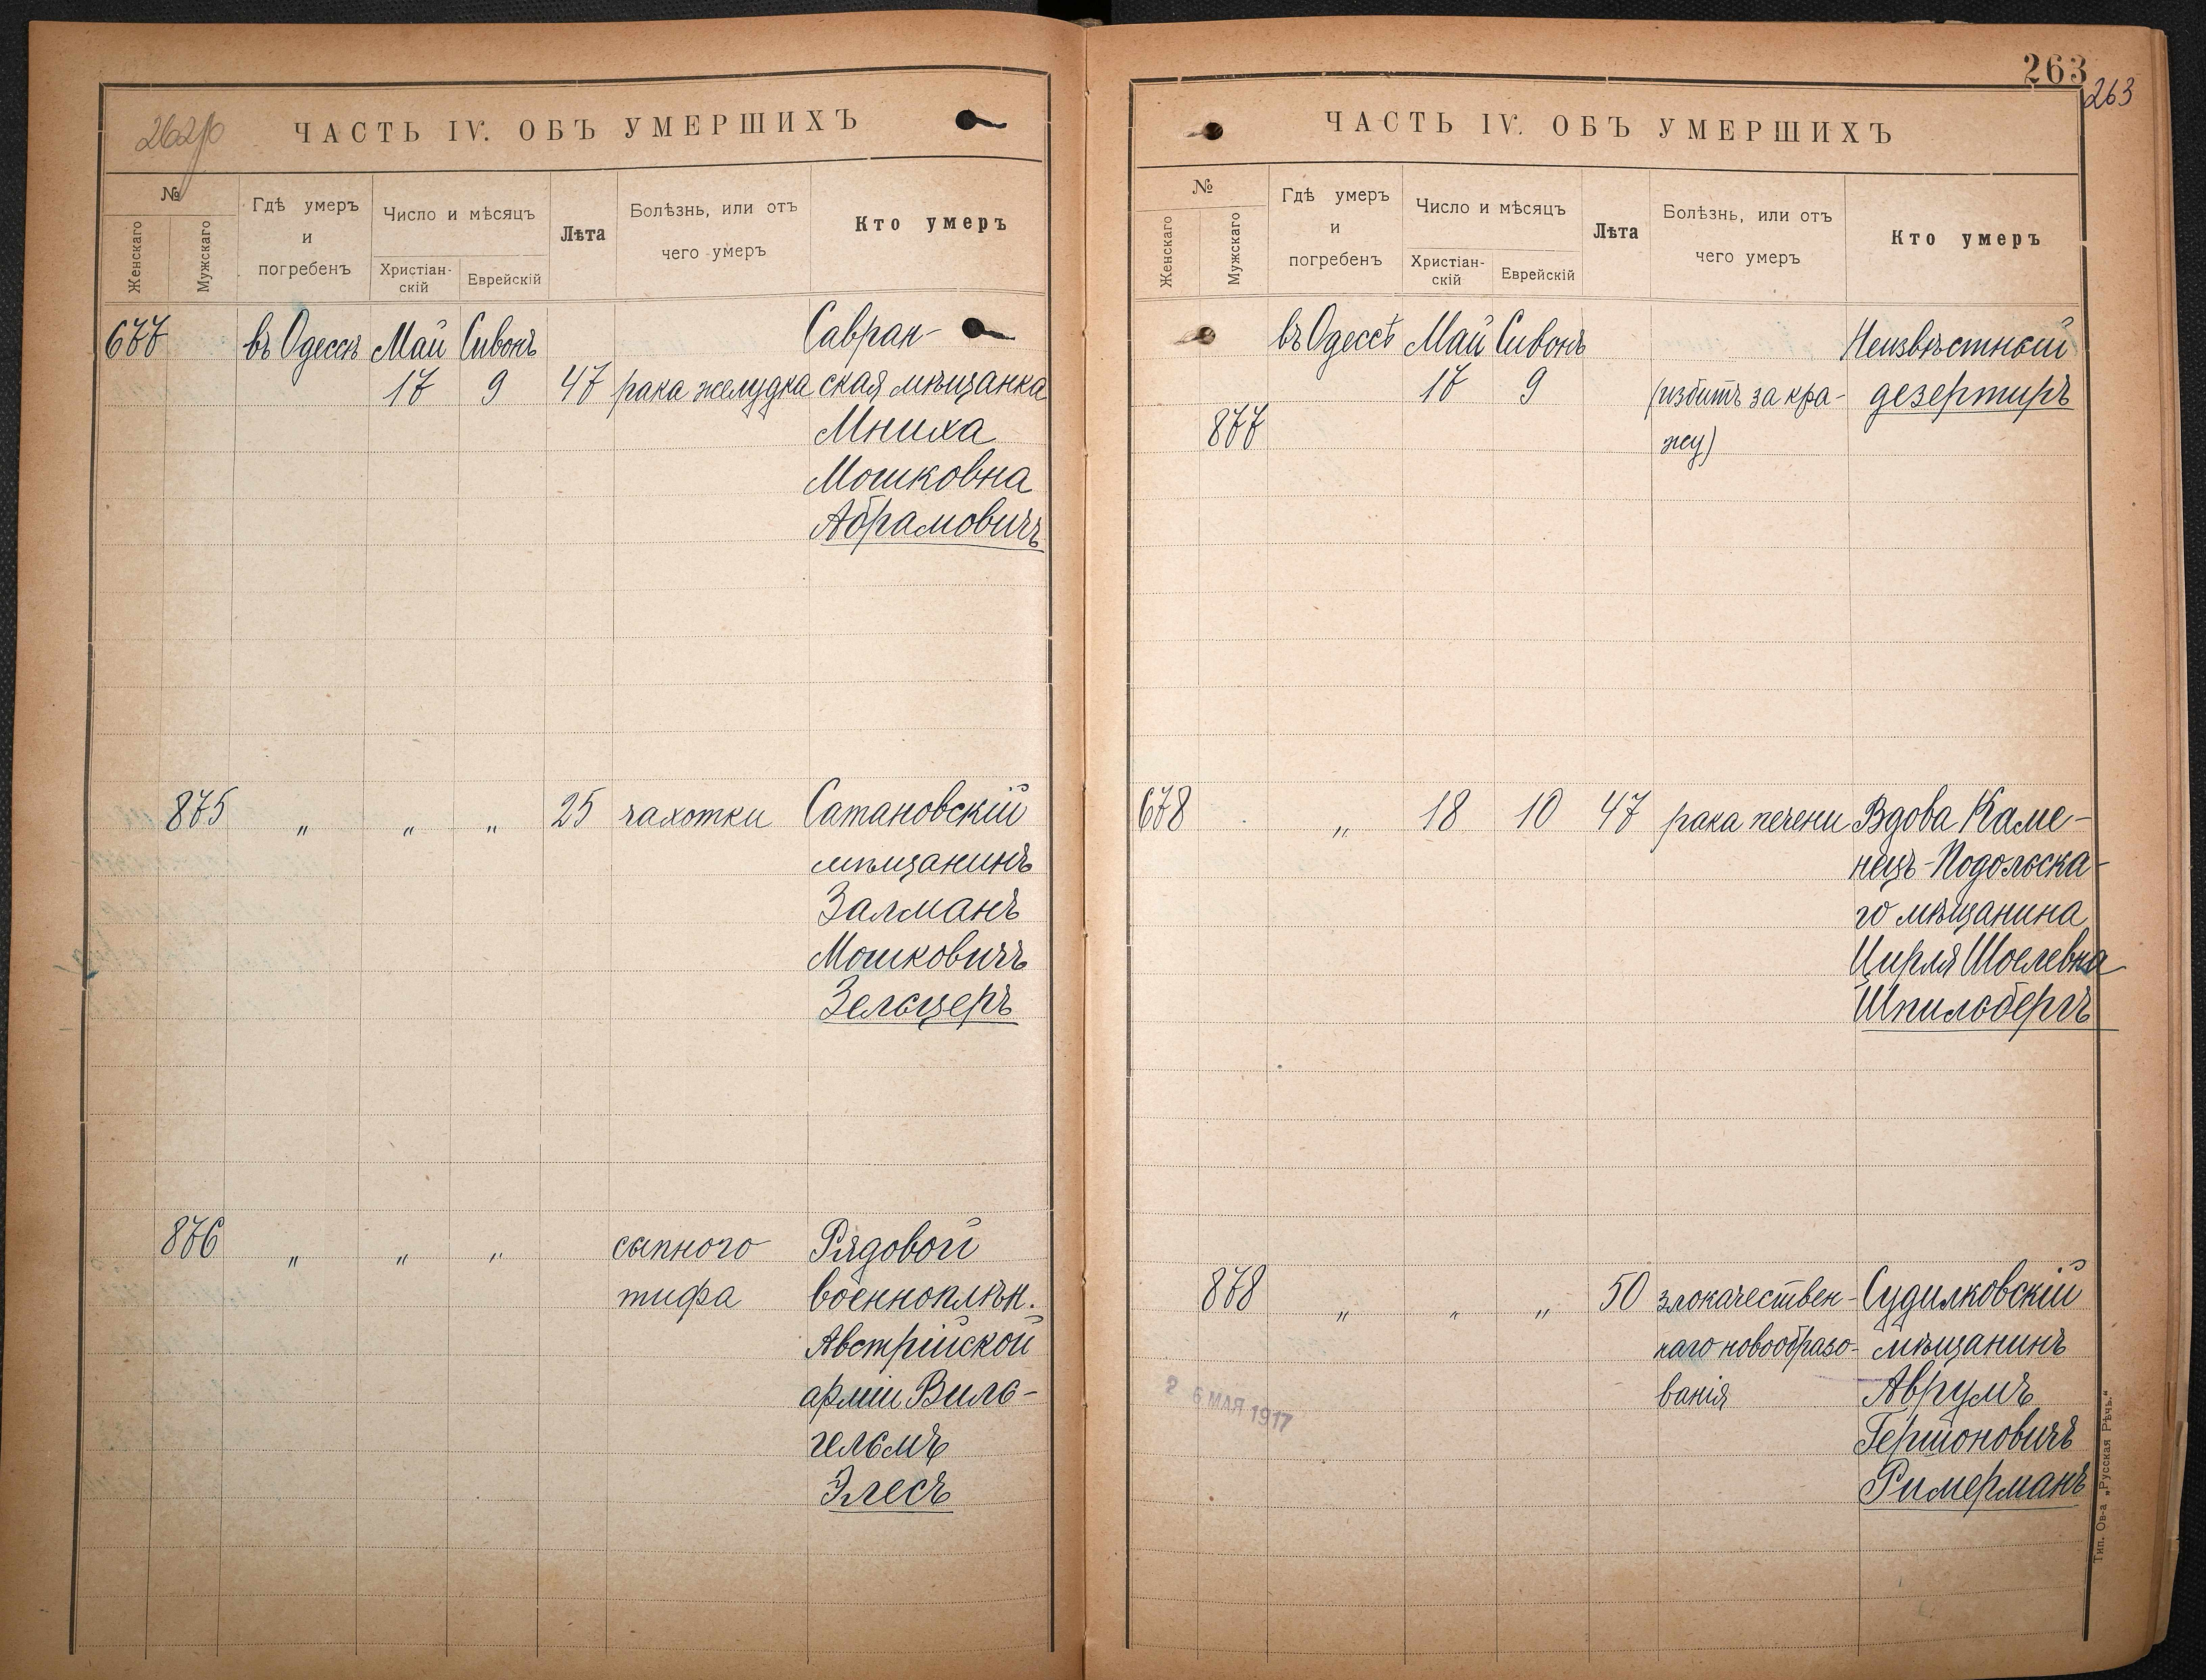 262об
ЧАСТЬ IV. ОБЪ УМЕРШИХЪ
№
Женскаго
Мужскаго
Гдѣ умеръ
и
погребенъ
Число и мѣсяцъ
Христіан-
скій
Еврейскій
Лѣта
Болѣзнь, или отъ
чего умеръ
Кто умеръ
677 въ Одессѣ Май Сивонъ Савран-
17 9 47 рака желудка ская мѣщанка
Мниха
Мошковна
Абрамовичъ
875 „ „ „ 25 чахотки Сатановскій
мѣщанинъ
Залманъ
Мошковичъ
Зельцеръ
876 „ „ „ сыпного Рядовой
тифа военноплѣн.
Австрійской
арміи Виль-
гельмъ
Элесъ
263
263
ЧАСТЬ IV. ОБЪ УМЕРШИХЪ
№
Женскаго
Мужскаго
Гдѣ умеръ
и
погребенъ
Число и мѣсяцъ
Христіан-
скій
Еврейскій
Лѣта
Болѣзнь, или отъ
чего умеръ
Кто умеръ
въ Одессѣ Май Сивонъ Неизвѣстный
17 9 (избитъ за кра- дезертиръ
877 жу)
678 „ 18 10 47 рака печени Вдова Каме-
нецъ-Подольска-
го мѣщанина
Цирля Шоелевна
Шпильбергъ
878 „ „ „ 50 злокачествен- Судилковскій
наго новообразо- мѣщанинъ
ванія Аврумъ
Гершоновичъ
Римерманъ
2 6 МАЯ 1917
Тип. Ов-а „Русская Рѣчь.“